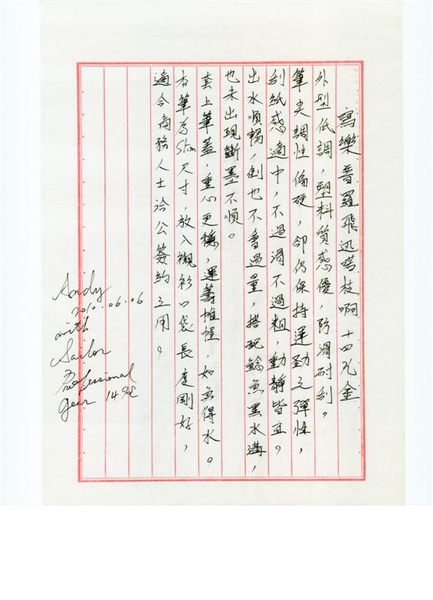 寫樂普羅飛迅塔枝啊十四K金
外型低調,塑料質感優,防滑耐刮。
筆尖調性偏硬,卻仍保持運動之彈性,
刮紙感適中,不過滑不過粗,動靜皆宜。
出水順暢,倒也不會過量,搭配鯰魚墨水溝,
也未出現斷墨不順。
套上筆蓋,重心更穩,運籌帷幄,如魚得水。
本筆為Slim尺寸,放入襯衫口袋長度剛好,
適合商務人士洽公簽約之用。
Andy
2010.06.06
with
Sailor
Professional
Gear 14K